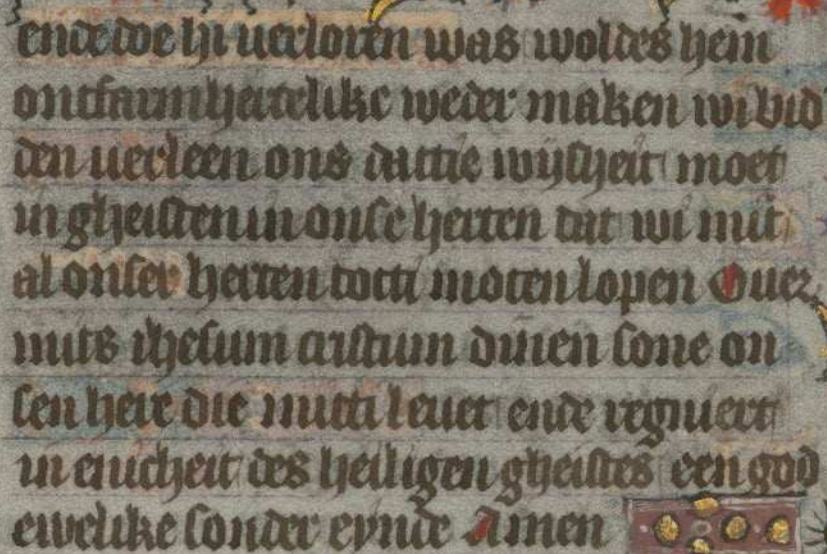 ende doe hi verloren was woldes hem
ontfarmhertelike weder maken wi bid
den verleen ons dattie wijsheit moet
in gheisten in onse herten dat wi mit
al onser herten totti moten lopen Over
mits ihesum cristum dinen sone on
sen here die mitti levet ende regniert
in enicheit des heiligen gheistes een god
ewelike sonder eynde Amen